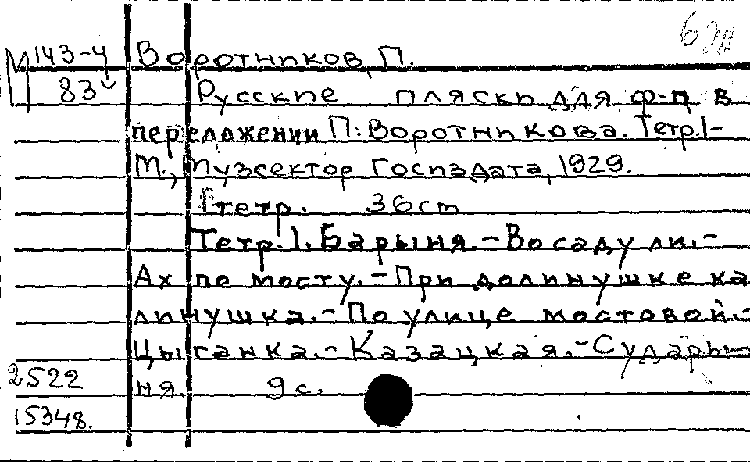 М 143-4 Воротников, П.
83 Русские пляски для ф-п в
переложении П. Воротникова. Тетр. 1-
М., Музсектор Госиздата, 1929.
1 тетр. 36cm
Тетр. 1. Барыня. - Во саду ли. -
Ах по мосту. - При долинушке ка
линушка. - По улице мостовой. -
Цыганка. - Казацкая. - Судары-
2522 ня. 9 с.
15348.